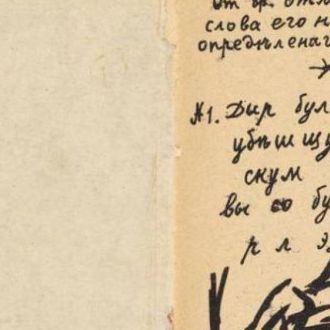 слова его н
опредѣленаг
№1. Дыр бул
убѣшщу
скум
вы со бу
р л э